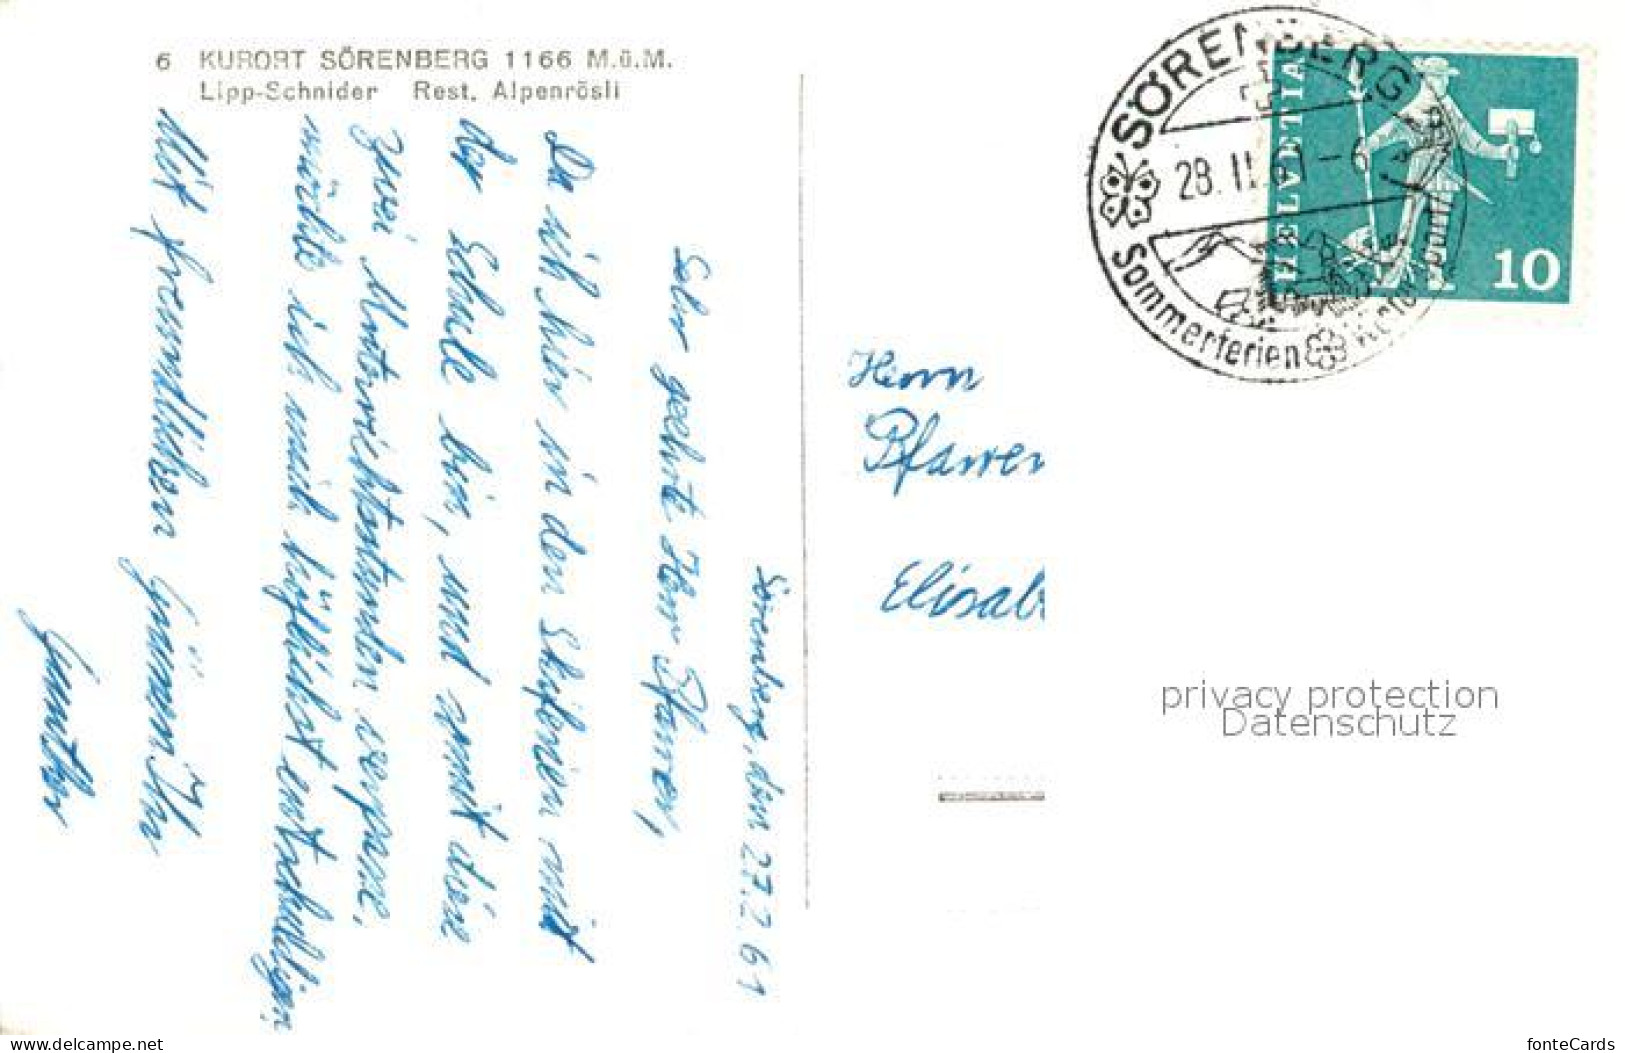 6 KURORT SÖRENBERG 1166 M.ü.M.
Lipp-Schnider Rest. Alpenrösli
Sörenberg, den 27.2.61
Sehr geehrte Herr Pfarrer,
Da ich hier in den Skiferien mit
der Schule bin, und somit die
zwei Unterrichtsstunden verpasse,
möchte ich mich höflichst entschuldigen
Mit freundlichen Grüssen Ihr
Herrn
Pfarrer
Elisab
SÖRENBERG
28. II. 61 - 6
Sommerferien
HELVETIA
10
privacy protection
Datenschutz
www.delcampe.net
fonteCards